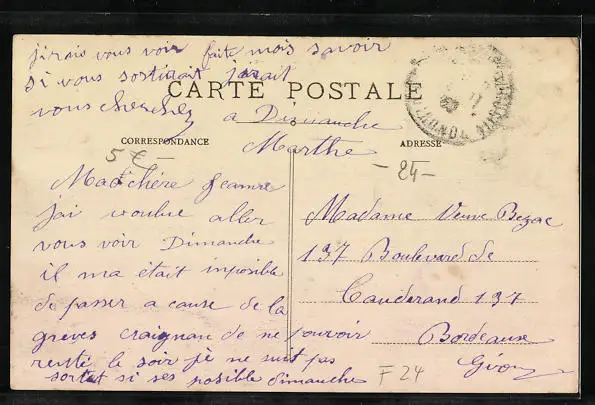 jirais vous voir faite mois savoir
si vous sortirait jirait
vous cherchez
CARTE POSTALE
a Dimanche
Marthe
CORRESPONDANCE
ADRESSE
5 €
- 24 -
Ma chére Jeanne
jai voulue aller
vous voir Dimanche
il ma était imposible
de passer a cause de la
greves craignan de ne pouvoir
rentré le soir je ne suit pas
sortet si ses posible dimanche
Madame Veuve Bezac
137 Boulevard de
Cauderand 137
Bordeaux
Giron
F 24